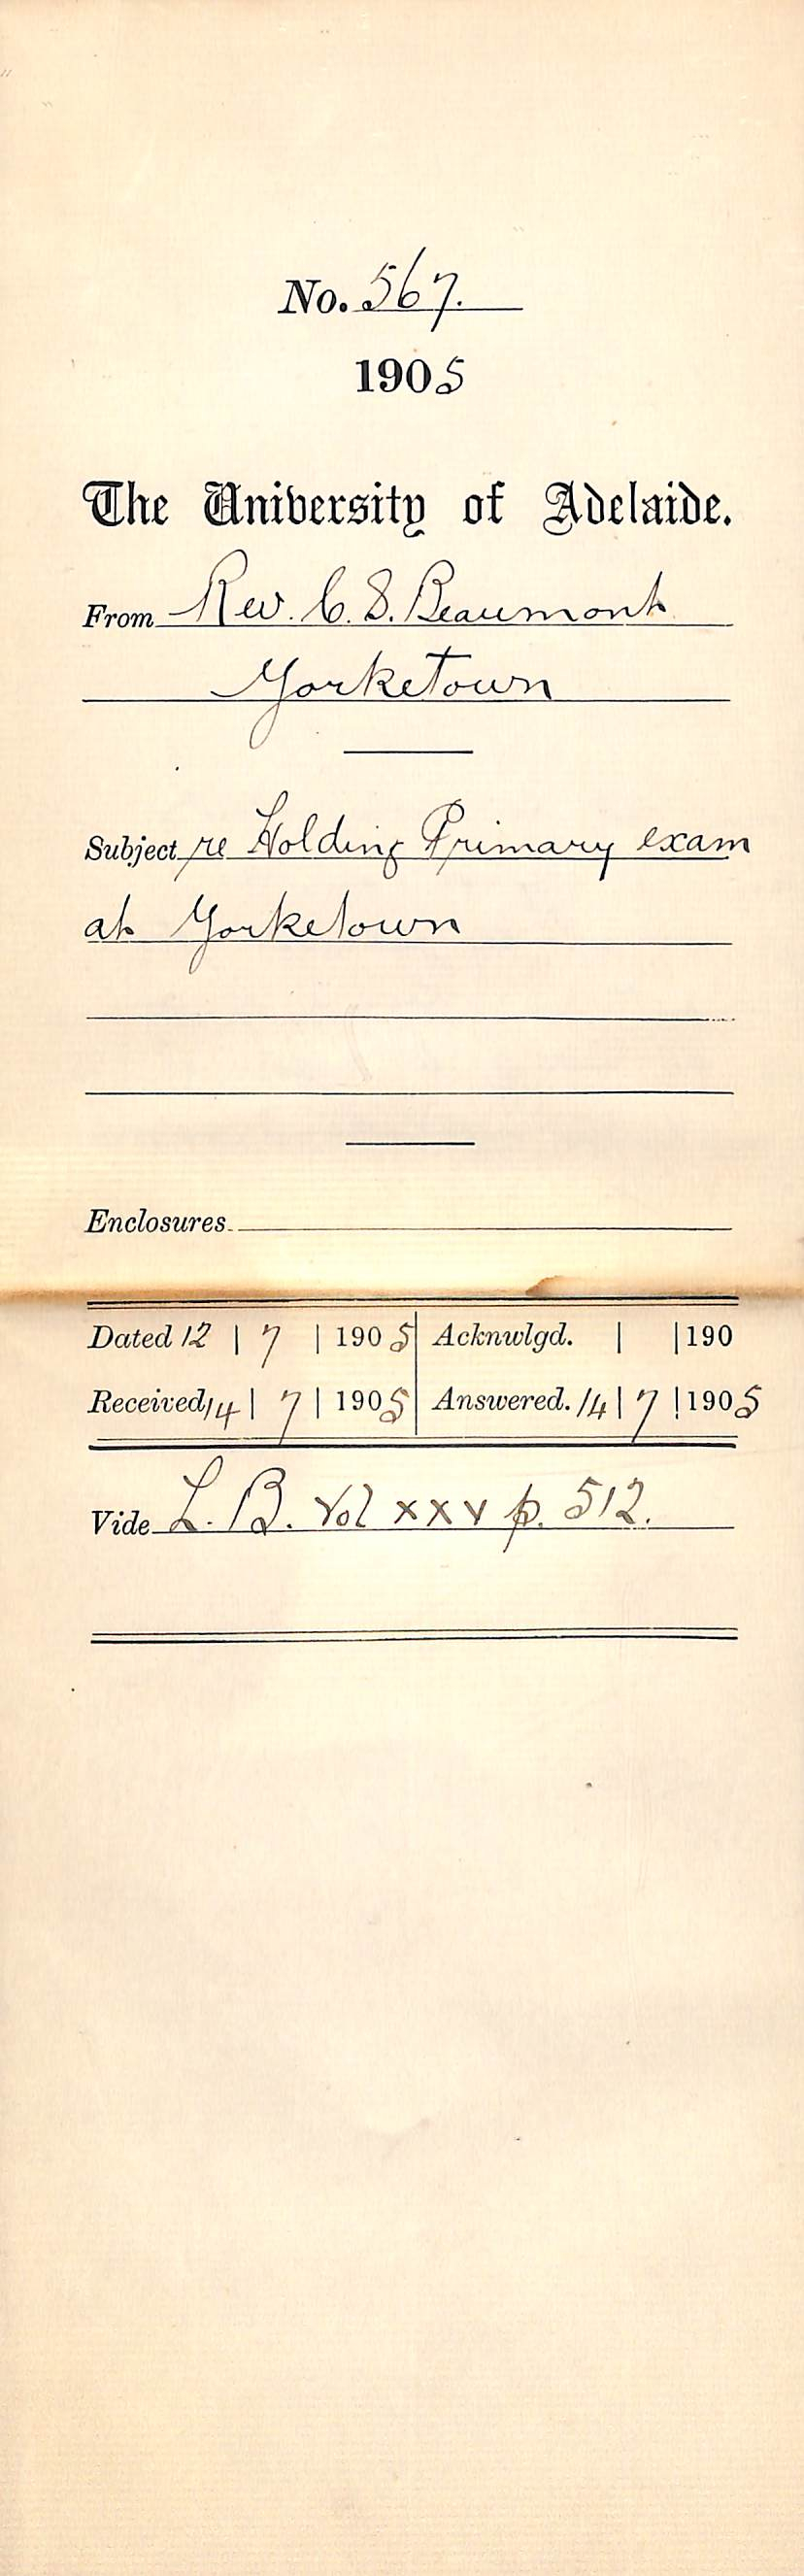 No. 567.
1905
The University of Adelaide.
From Rev. C. S. Beaumont
Yorketown
Subject re Holding Primary exam
at Yorketown
Enclosures
Dated 12 | 7 | 1905 | Acknwlgd. | | 190
Received 14 | 7 | 1905 | Answered. 14 | 7 | 1905
Vide L. B. Vol xxv p. 512.